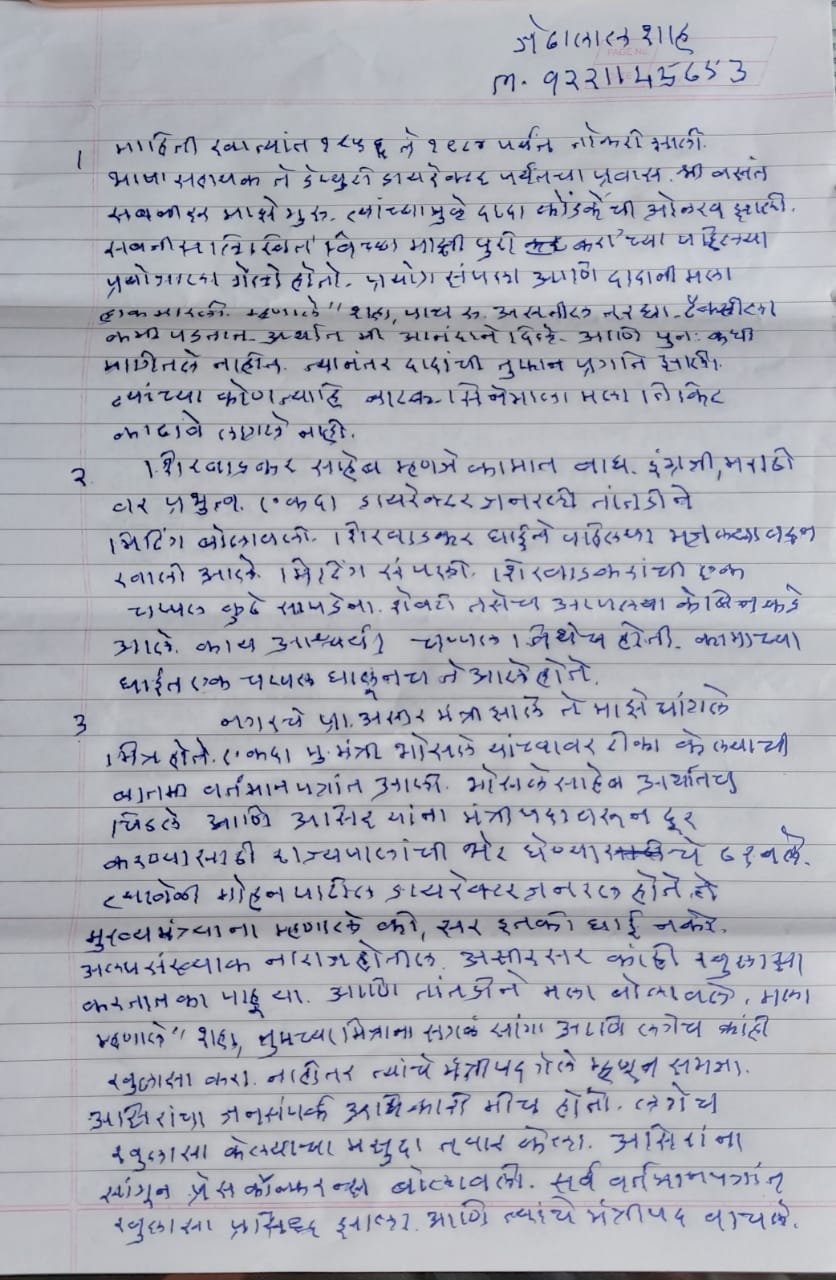 जेठालाल शाह
PAGE No.
म. ९२२११४५६५३
१ माहिती खात्यांत १९५६ ते १९८७ पर्यंत नोकरी झाली.
भाषा सहायक ते डेप्युटी डायरेक्टर पर्यंतचा प्रवास. श्री वसंत
सबनीस माझे गुरु. त्यांच्यामुळे दादा कोंडकेंची ओळख झाली.
सबनीसलिखित विच्छा माझी पुरी करा च्या पहिल्या
प्रयोगाला गेलो होतो. प्रयोग संपला आणि दादानी मला
हाक मारली. म्हणाले " शहा, पाच रु. असतील तर द्या. टॅक्सीला
कमी पडतात. अर्थात मी आनंदाने दिले. आणि पुनः कधी
मागीतले नाहीत. त्यानंतर दादांची तुफान प्रगति झाली.
त्यांच्या कोणत्याहि नाटक सिनेमाला मला तिकिट
काढावे लागले नाही.
२ शिरवाडकर साहेब म्हणजे कामात वाघ. इंग्रजी, मराठी
वर प्रभुत्व. एकदा डायरेक्टर जनरलनी तांतडीने
मिटिंग बोलावली. शिरवाडकर घाईने पहिल्या मजल्यावरून
खाली आले. मिटिंग संपली. शिरवाडकरांची एक
चप्पल कुठे सापडेना. शेवटी तसेच आपल्या केबिनकडे
आले. काय आश्चर्य! चप्पल तिथेच होती. कामाच्या
घाईत एक चप्पल घालूनच ते आले होते.
३ नगरचे प्रा. असीर मंत्री झाले ते माझे चांगले
मित्र होते. एकदा मु. मंत्री भोसले यांच्यावर टीका केल्याची
बातमी वर्तमानपत्रांत आली. भोसले साहेब अर्थातच
चिडले आणि आसिर यांना मंत्रीपदावरून दूर
करण्यासाठी राज्यपालांची भेट घेण्याचे ठरवले.
त्यावेळी मोहन पाटील डायरेक्टर जनरल होते. ते
मुख्यमंत्र्याना म्हणाले की, सर इतकी घाई नको.
अल्पसंख्याक नाराज होतील. असीरसर कांही खुलासा
करतात का पाहू या. आणि तांतडीने मला बोलावले. मला
म्हणाले " शहा, तुमच्या मित्राना सगळं सांगा आणि लगेच कांही
खुलासा करा. नाहीतर त्यांचे मंत्रीपद गेले म्हणून समजा.
आसिरांचा जनसंपर्क अधिकारी मीच होतो. लगेच
खुलासा केल्याचा मसुदा तयार केला. आसिरांना
सांगून प्रेस कॉन्फरन्स बोलावली. सर्व वर्तमानपत्रांत
खुलासा प्रसिद्ध झाला. आणि त्यांचे मंत्रीपद वाचले.